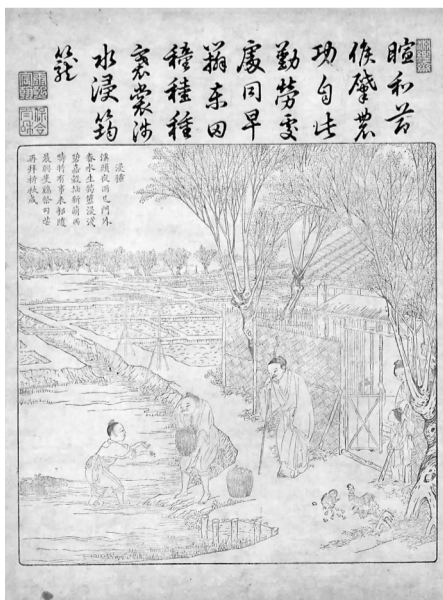 暄和節
候肇農
功自此
勤勞處
處同早
辦東田
穜稑種
褰裳涉
水浸筠
籠
浸種
溪頭夜雨足門外
春水生筠籃浸淺
碧嘉穀抽新萌西
疇將有事耒耜隨
晨興隻雞祭句芒
再拜祈秋成